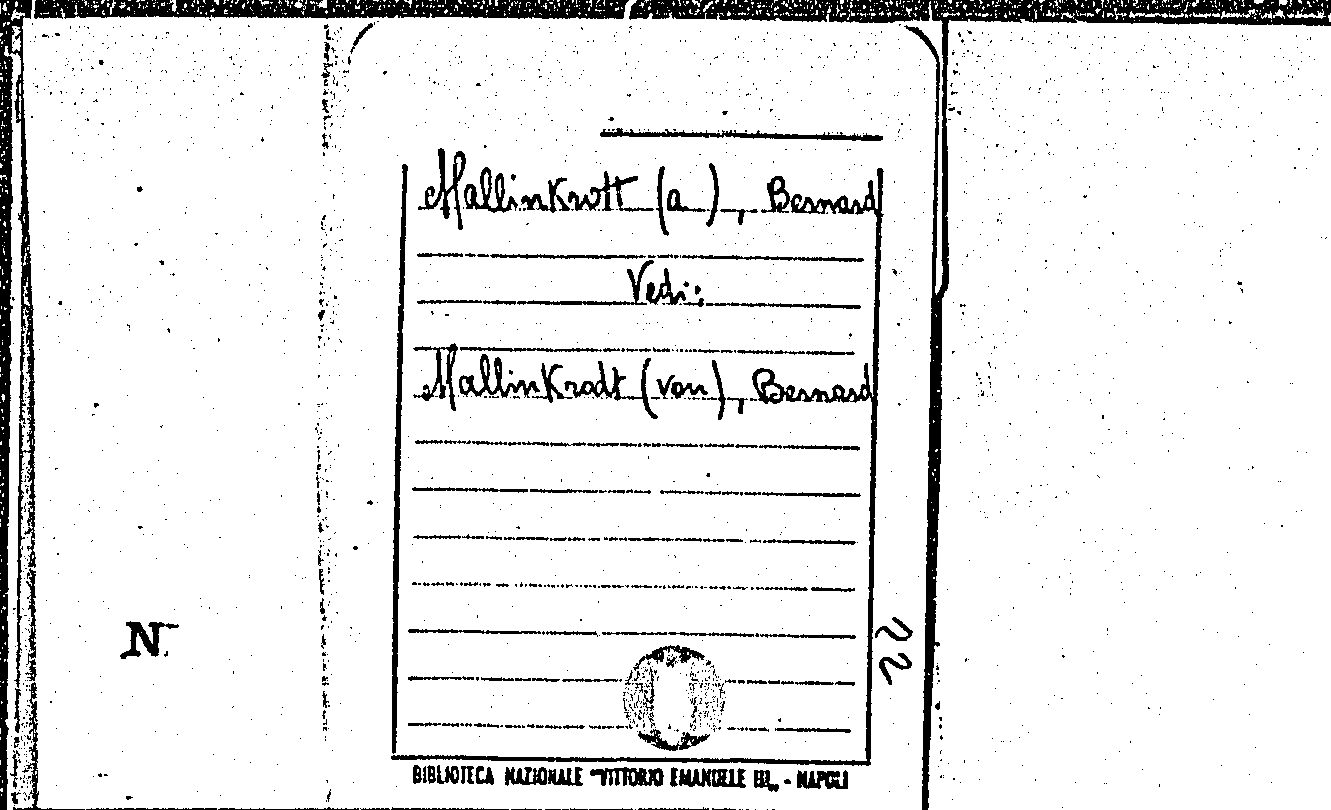 Mallinkrott (a ), Bernard
Vedi:
Mallinkrodt (von), Bernard
N.
22
BIBLIOTECA NAZIONALE "VITTORIO EMANUELE III„ - NAPOLI